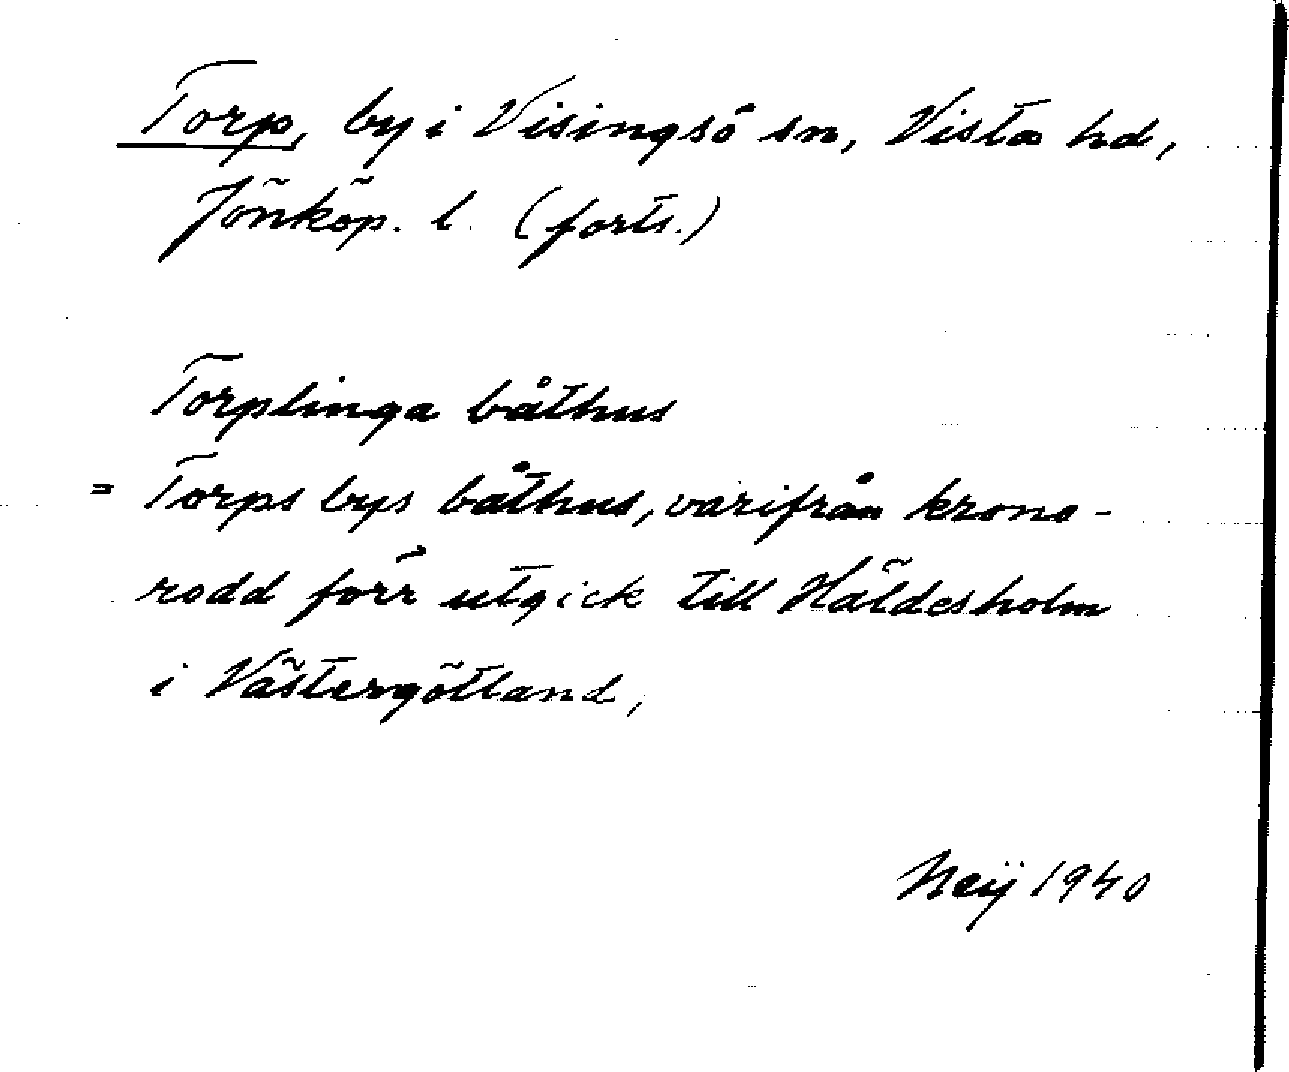 Torp, by i Visingsö sn, Vista hd,
Jönköp. l. (forts.)
Torplinga båthus
= Torps bys båthus, varifrån krono-
rodd förr utgick till Häldesholm
i Västergötland,
Neij 1940